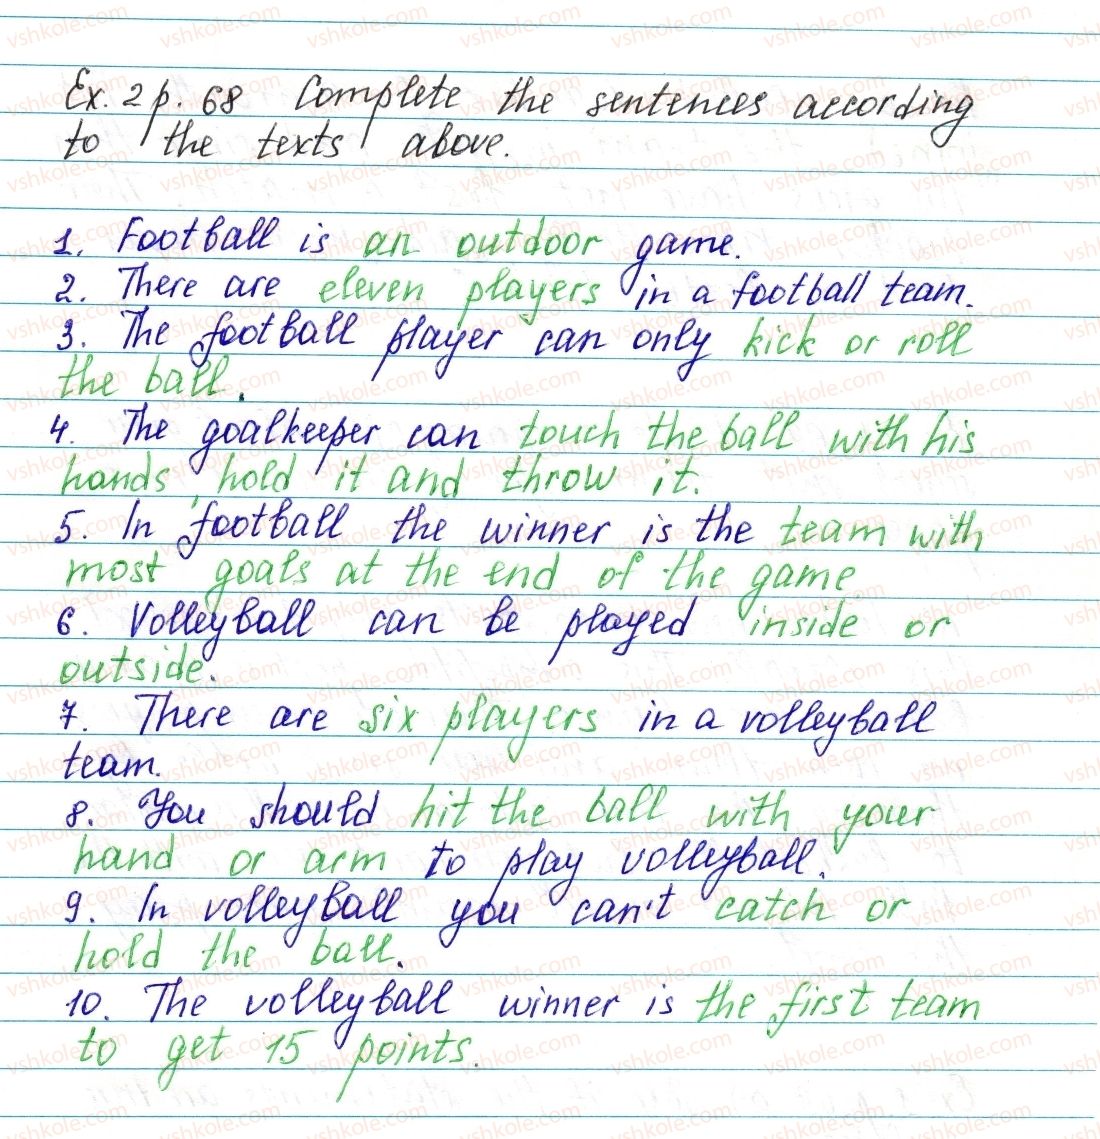 Ex. 2 p. 68 Complete the sentences according
to the texts above.
1. Football is an outdoor game.
2. There are eleven players in a football team.
3. The football player can only kick or roll
the ball.
4. The goalkeeper can touch the ball with his
hands, hold it and throw it.
5. In football the winner is the team with
most goals at the end of the game.
6. Volleyball can be played inside or
outside.
7. There are six players in a volleyball
team.
8. You should hit the ball with your
hand or arm to play volleyball.
9. In volleyball you can't catch or
hold the ball.
10. The volleyball winner is the first team
to get 15 points.